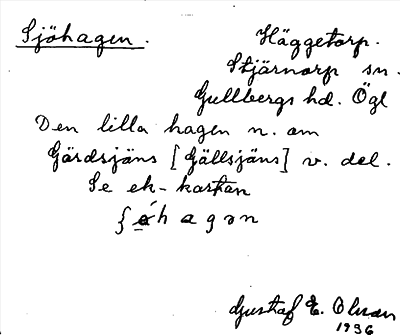 Sjöhagen.
Häggetorp.
Stjärnorp sn.
Gullbergs hd. Ögl
Den lilla hagen n. om
Gärdsjäns [Gällsjäns] v. del.
Se ek-kartan
h a g ə n
Gustaf E. Olsson
1936